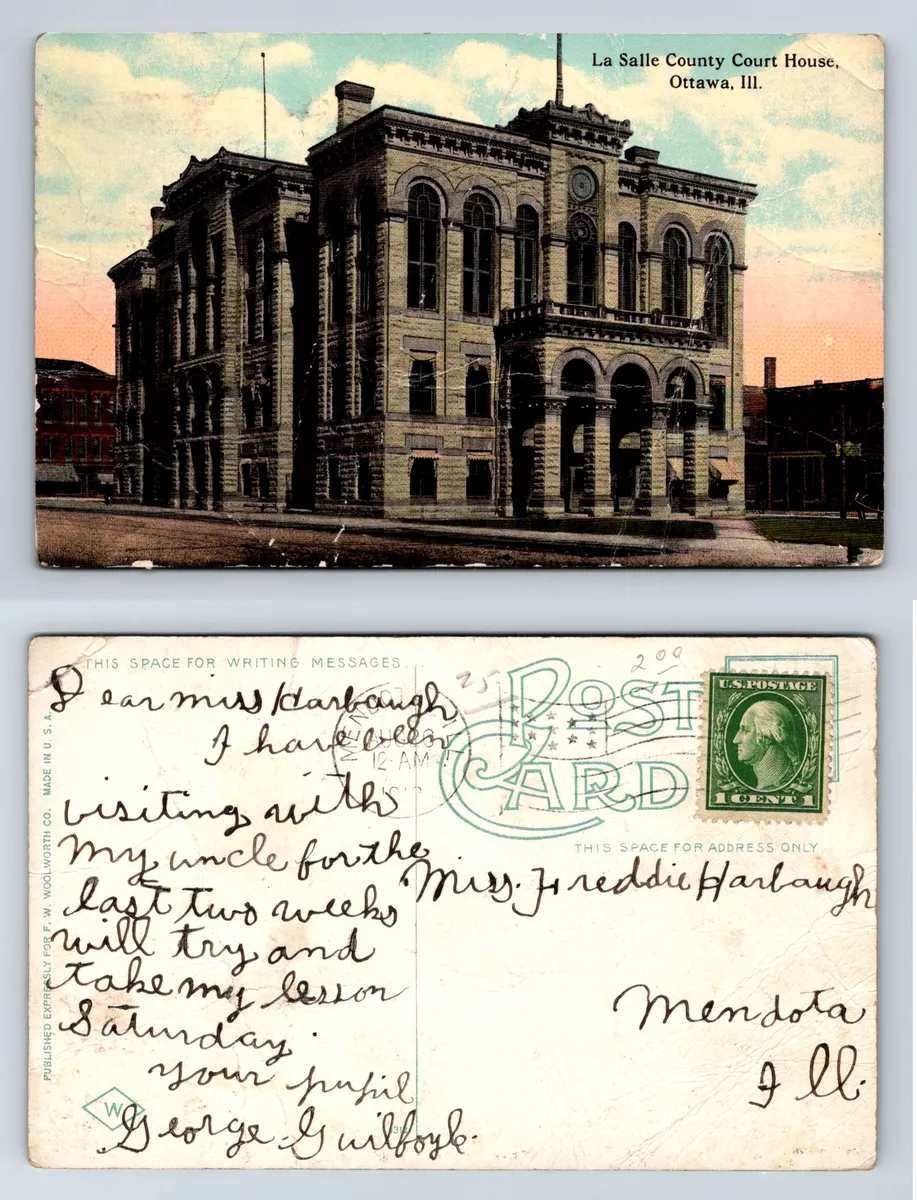 La Salle County Court House,
Ottawa, Ill.
THIS SPACE FOR WRITING MESSAGES
POST CARD
THIS SPACE FOR ADDRESS ONLY
PUBLISHED EXPRESSLY FOR F. W. WOOLWORTH CO. MADE IN U. S. A.
25
2 00
U.S. POSTAGE
1 CENT 1
12-AM
Dear miss Harbaugh
I have been
visiting with
my uncle for the
last two weeks
will try and
take my lesson
Saturday.
your pupil
George
Miss. Freddie Harbaugh
Mendota
Ill.
W